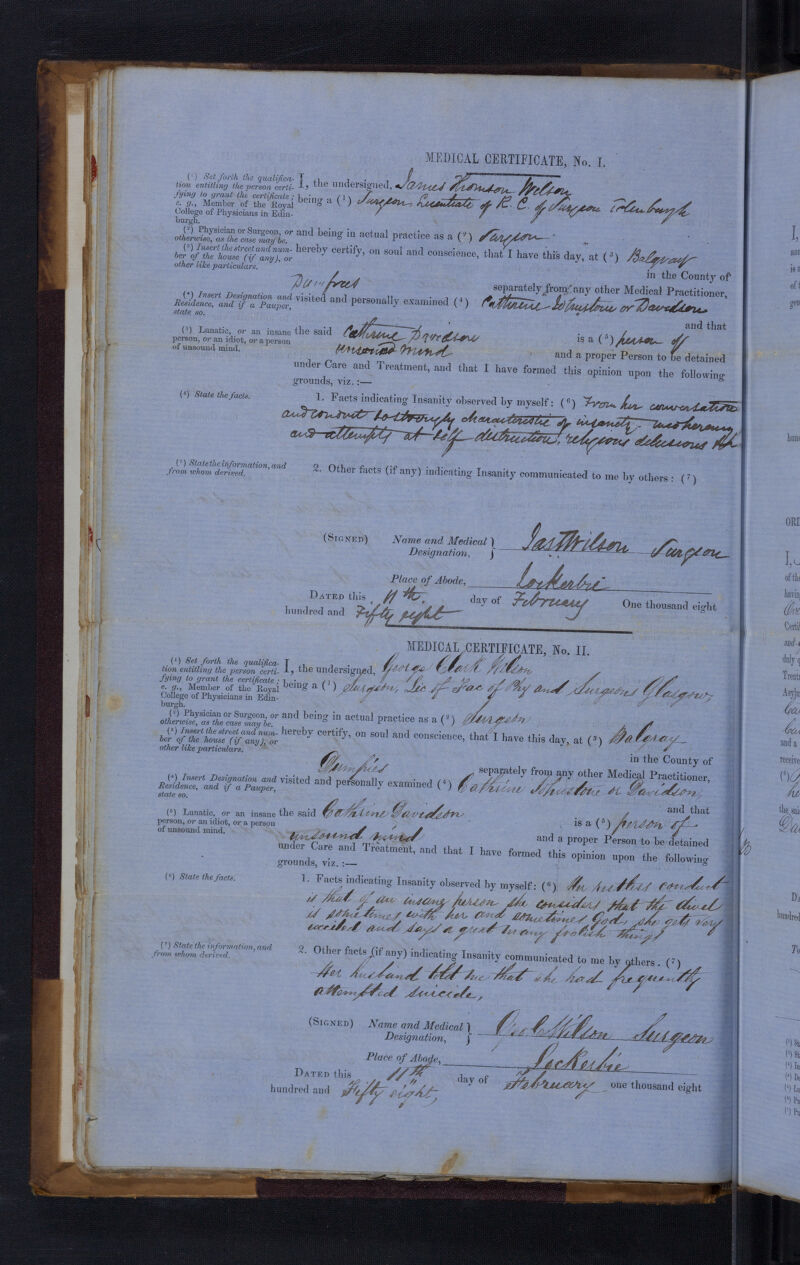 MEDICAL CERTIFICATE, No. I.
(1) Set forth the qualifica-
tion entitling the person certi-
fying to grant the certificate;
e. g., Member of the Royal
College of Physicians in Edin-
burgh.
I, the undersigned, James Thomson Wilson
being a (1) Surgeon Licentiate of R. C. of Surgeons Edinburgh
(2) Physician or Surgeon, or
otherwise, as the case may be.
and being in actual practice as a (2) Surgeon
(3) Insert the street and num-
ber of the house (if any), or
other like particulars.
hereby certify, on soul and conscience, that I have this day, at (3) Balgray
in the County of
Dumfries separately from any other Medical Practitioner,
(4) Insert Designation and
Residence, and if a Pauper,
state so.
visited and personally examined (4) Catherine Johnstone or Davidson
and that
(5) Lunatic, or an insane
person, or an idiot, or a person
of unsound mind.
the said Catherine Davidson is a (5) person of
unsound mind and a proper Person to be detained
under Care and Treatment, and that I have formed this opinion upon the following
grounds, viz. :—
(6) State the facts.
1. Facts indicating Insanity observed by myself: (6) From her conversation
and conduct so strongly characteristic of insanety incoherency
and attempts at self destruction, religious delusions
(7) State the information, and
from whom derived.
2. Other facts (if any) indicating Insanity communicated to me by others : (7)
(SIGNED) Name and Medical Designation, Jas T Wilson Surgeon
Place of Abode, Lockerbie
DATED this 11th day of February One thousand eight
hundred and Fifty eight
MEDICAL CERTIFICATE, No. II.
(1) Set forth the qualifica-
tion entitling the person certi-
fying to grant the certificate;
e. g., Member of the Royal
College of Physicians in Edin-
burgh.
I, the undersigned, George Clark Wilson
being a (1) Surgeon, Lic of Fac of Phy and Surgeons Glasgow,
(2) Physician or Surgeon, or
otherwise, as the case may be.
and being in actual practice as a (2) Surgeon
(3) Insert the street and num-
ber of the house (if any), or
other like particulars.
hereby certify, on soul and conscience, that I have this day, at (3) Balgray
in the County of
Dumfries separately from any other Medical Practitioner,
(4) Insert Designation and
Residence, and if a Pauper,
state so.
visited and personally examined (4) Cathrine Johnstone or Davidson
and that
(5) Lunatic, or an insane
person, or an idiot, or a person
of unsound mind.
the said Cathrine Davidson is a (5) person of
unsound mind and a proper Person to be detained
under Care and Treatment, and that I have formed this opinion upon the following
grounds, viz. :—
(6) State the facts.
1. Facts indicating Insanity observed by myself: (6) Her restless conduct
is that of an insane person she considers that the divel
is sometimes with her and sometimes God, she gets very
excited and says a great many foolish things
(7) State the information, and
from whom derived.
2. Other facts (if any) indicating Insanity communicated to me by others. (7)
Her husband told me that she had frequently
attempted suicide,
(SIGNED) Name and Medical Designation, Geo C Wilson Surgeon
Place of Abode, Lockerbie
DATED this 11th day of February one thousand eight
hundred and Fifty eight,